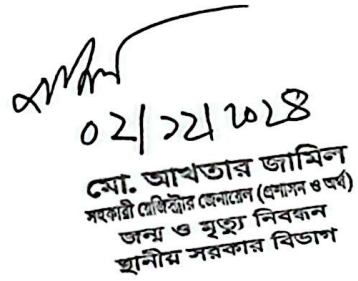 ০২/১২/২০২৪
মো. আখতার জামিল
সহকারী রেজিস্ট্রার জেনারেল (প্রশাসন ও অর্থ)
জন্ম ও মৃত্যু নিবন্ধন
স্থানীয় সরকার বিভাগ